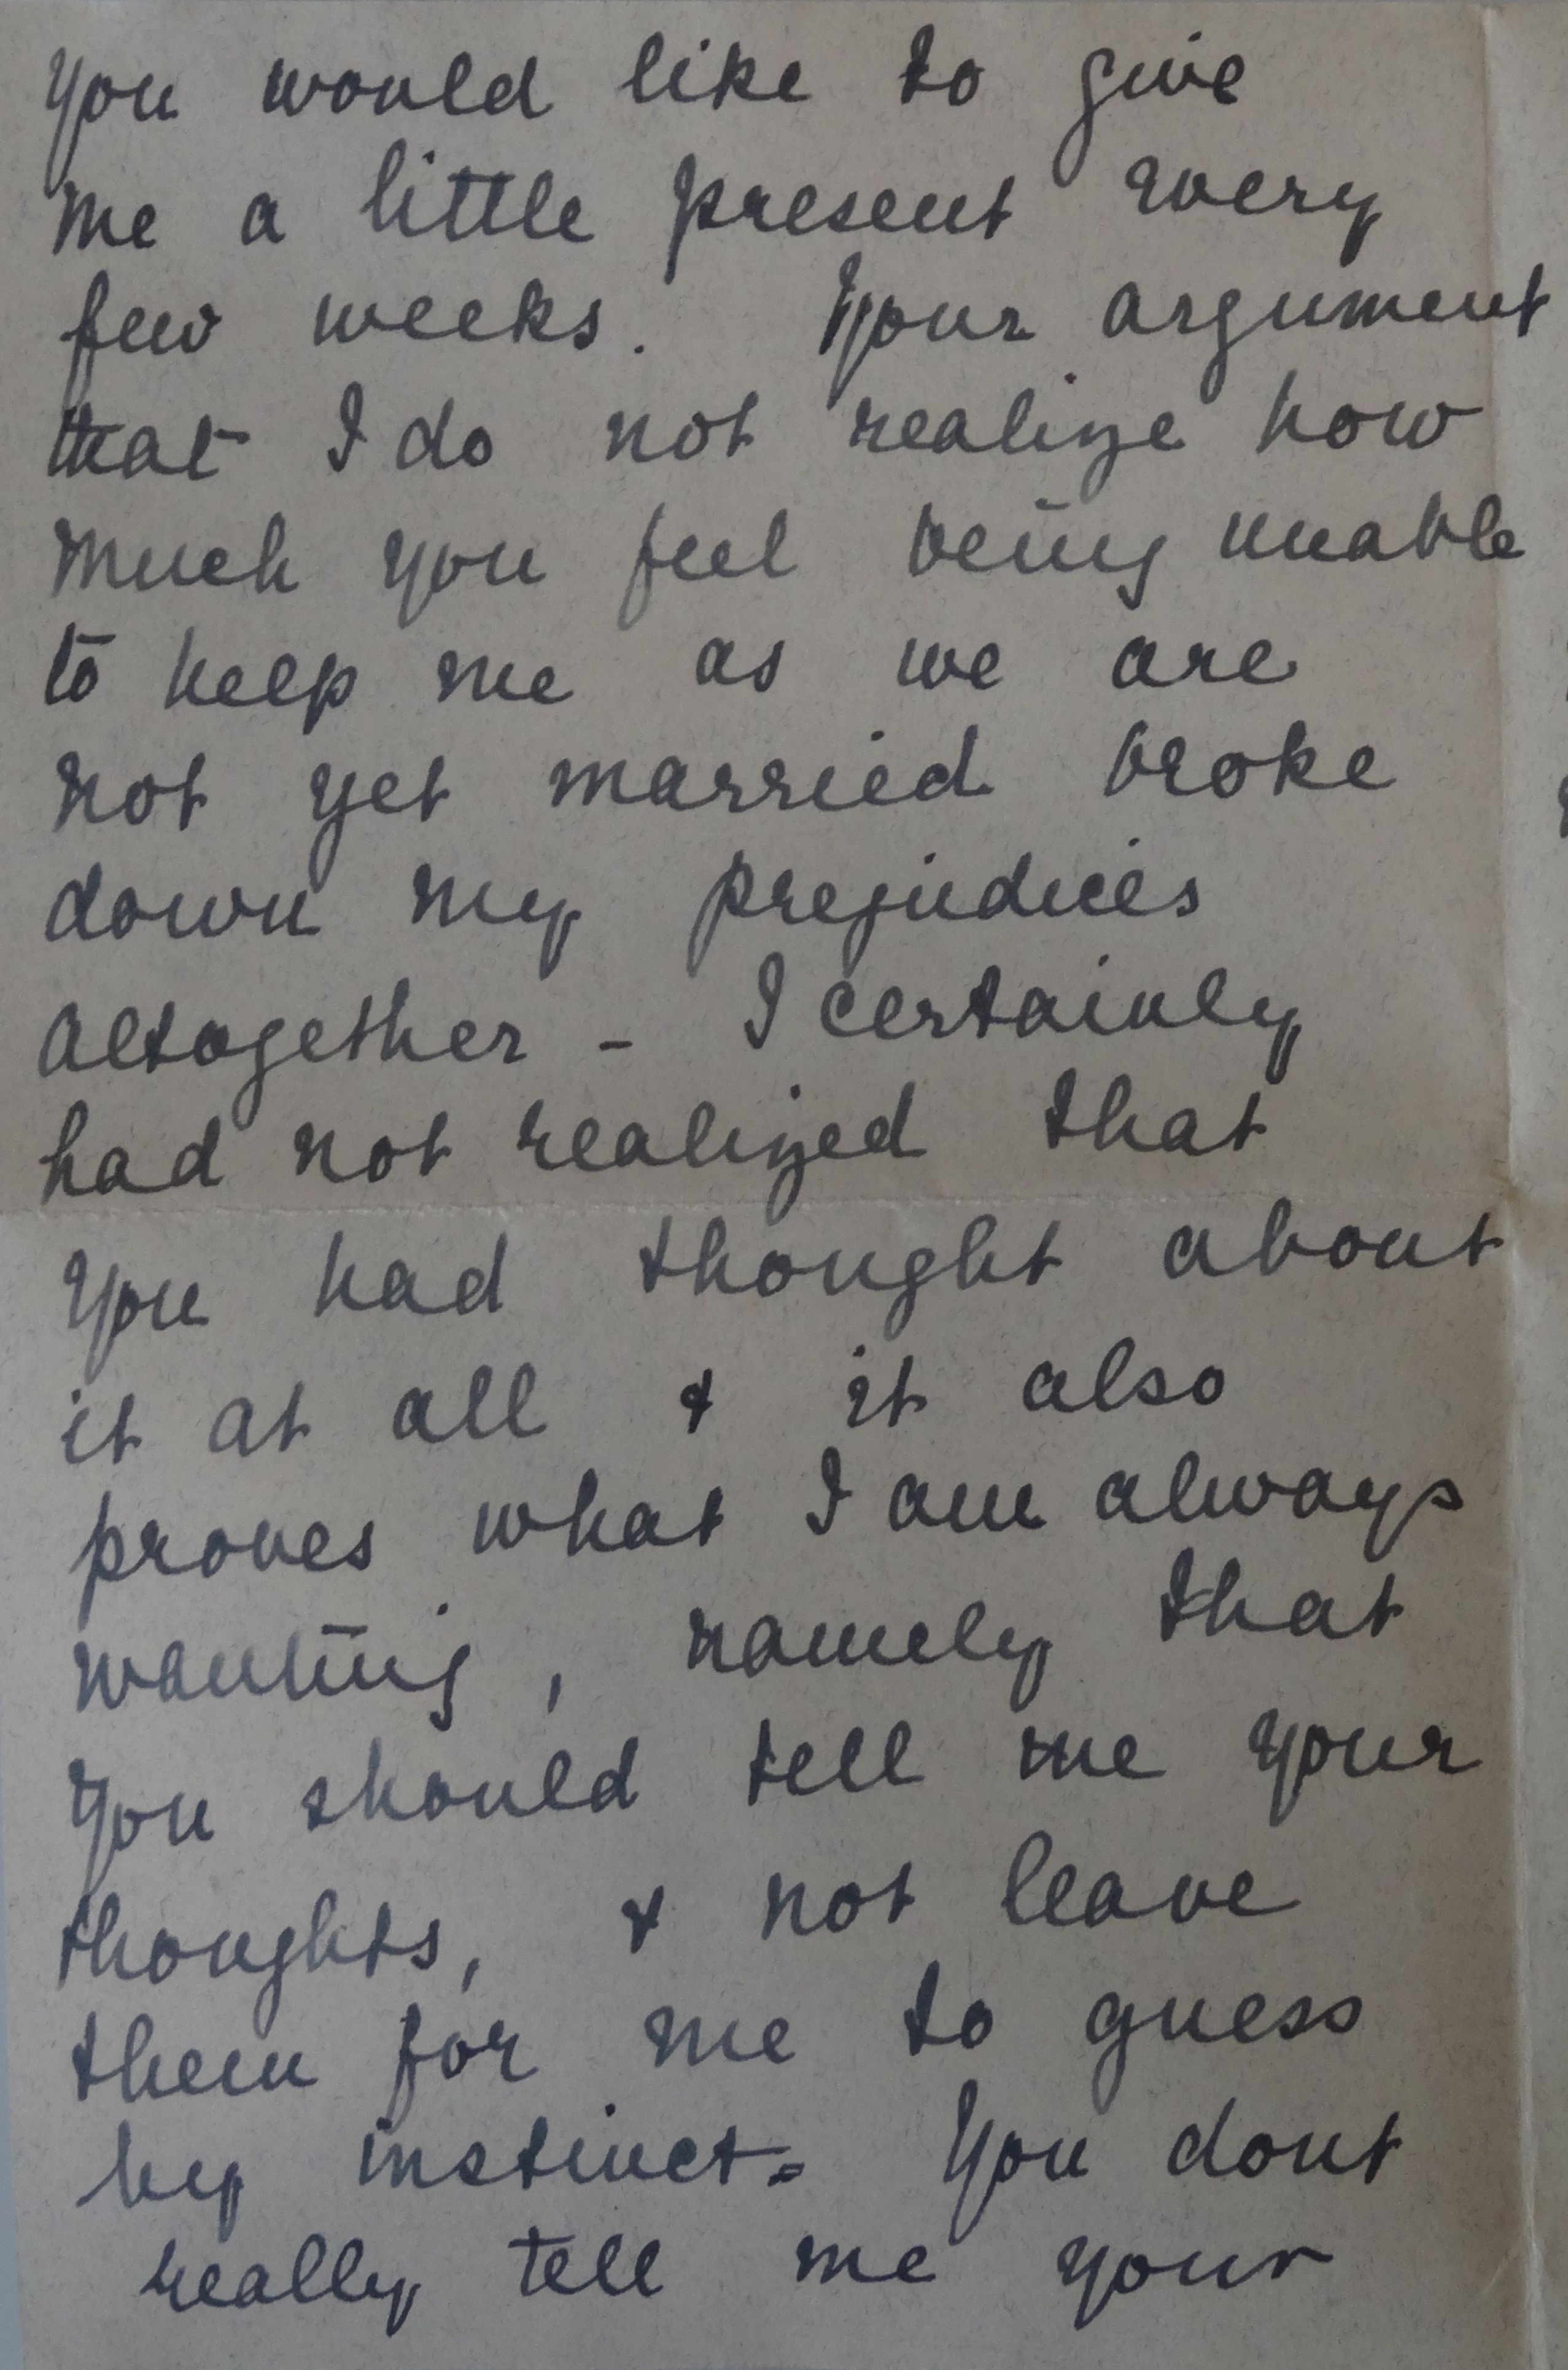 you would like to give
me a little present every
few weeks. Your argument
that I do not realize how
much you feel being unable
to keep me as we are
not yet married broke
down my prejudices
altogether - I certainly
had not realized that
you had thought about
it at all & it also
proves what I am always
wanting, namely that
you should tell me your
thoughts, & not leave
them for me to guess
by instinct. You dont
really tell me your